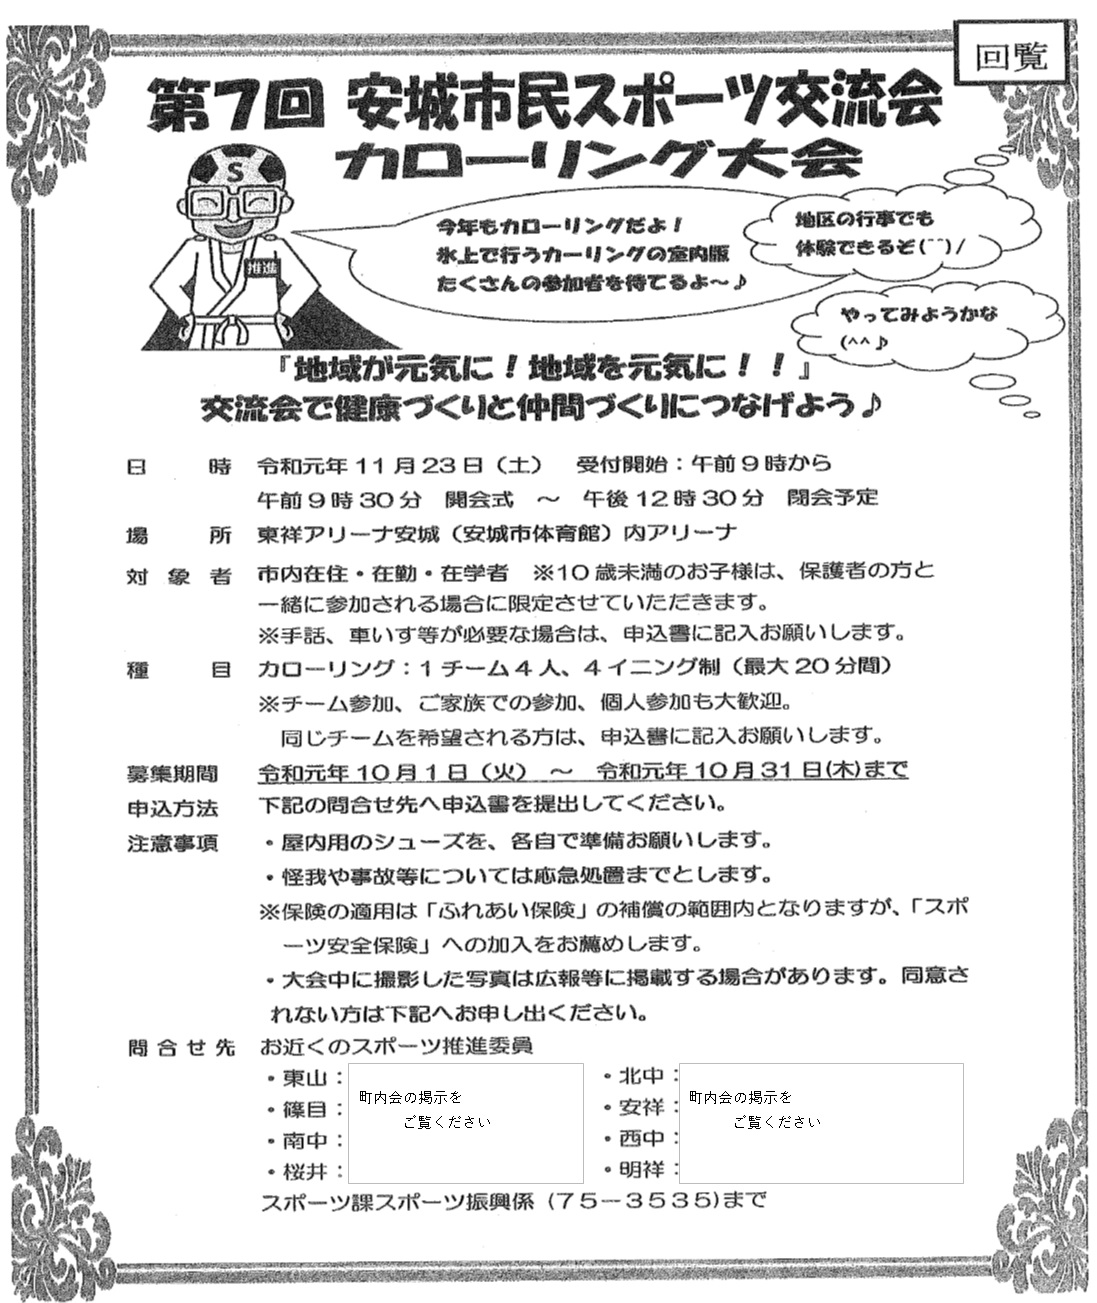 回覧
第7回 安城市民スポーツ交流会
カローリング大会
S
推進
今年もカローリングだよ！
氷上で行うカーリングの室内版
たくさんの参加者を待てるよ～♪
地区の行事でも
体験できるぞ(^^)/
やってみようかな
(^^♪
『地域が元気に！地域を元気に！！』
交流会で健康づくりと仲間づくりにつなげよう♪
日　時　令和元年11月23日（土）　受付開始：午前9時から
午前9時30分　開会式　～　午後12時30分　閉会予定
場　所　東祥アリーナ安城（安城市体育館）内アリーナ
対象者　市内在住・在勤・在学者　※10歳未満のお子様は、保護者の方と
一緒に参加される場合に限定させていただきます。
※手話、車いす等が必要な場合は、申込書に記入お願いします。
種　目　カローリング：1チーム4人、4イニング制（最大20分間）
※チーム参加、ご家族での参加、個人参加も大歓迎。
同じチームを希望される方は、申込書に記入お願いします。
募集期間　令和元年10月1日（火）　～　令和元年10月31日(木)まで
申込方法　下記の問合せ先へ申込書を提出してください。
注意事項　・屋内用のシューズを、各自で準備お願いします。
・怪我や事故等については応急処置までとします。
※保険の適用は「ふれあい保険」の補償の範囲内となりますが、「スポ
ーツ安全保険」への加入をお薦めします。
・大会中に撮影した写真は広報等に掲載する場合があります。同意さ
れない方は下記へお申し出ください。
問合せ先　お近くのスポーツ推進委員
・東山：　・北中：
町内会の掲示を　町内会の掲示を
・篠目：　・安祥：
ご覧ください　ご覧ください
・南中：　・西中：
・桜井：　・明祥：
スポーツ課スポーツ振興係（75－3535)まで